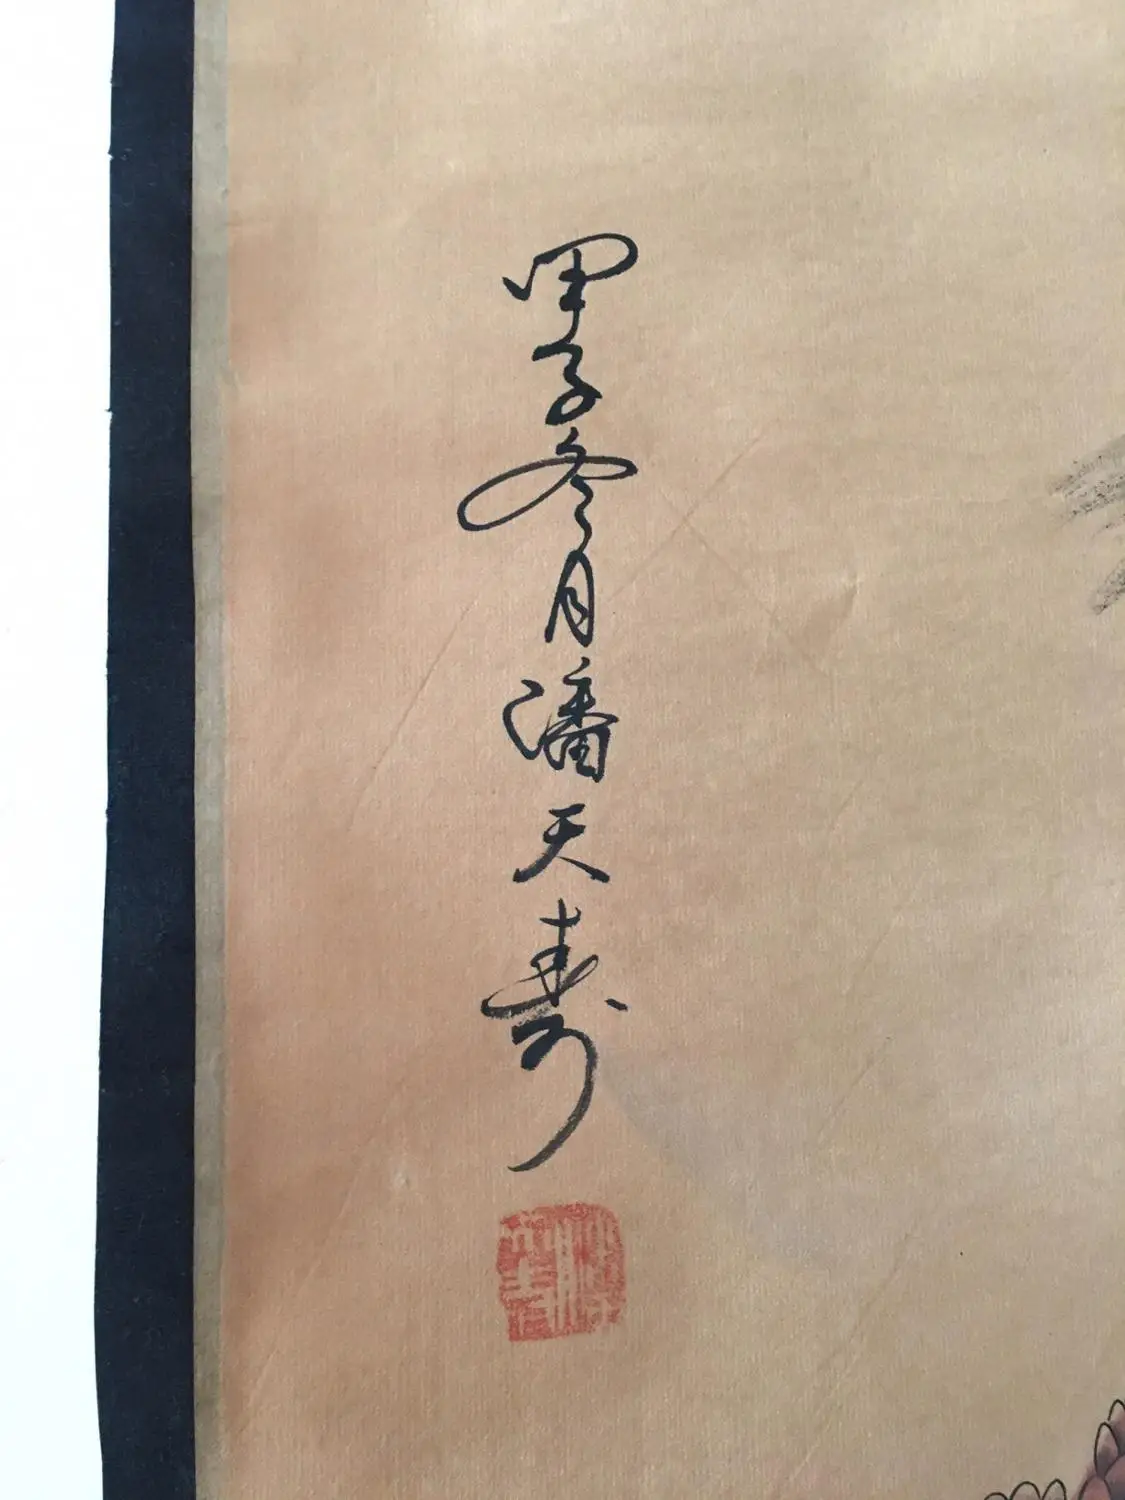 甲子冬月潘天寿